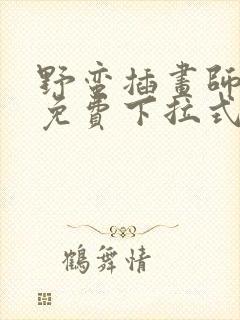 野蛮插畫師
免費下拉式
鶴舞情